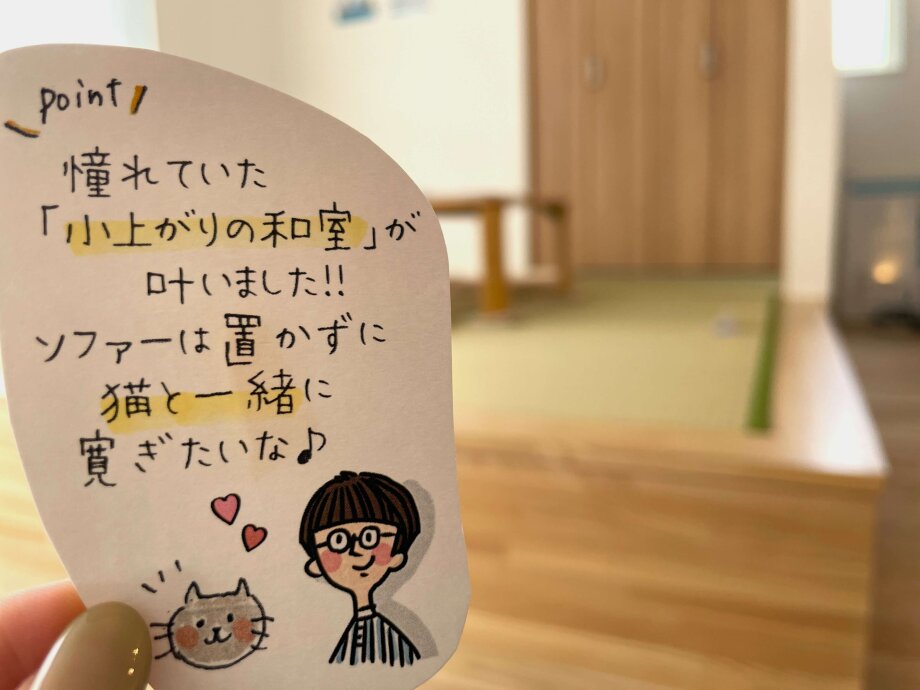 point
憧れていた
「小上がりの和室」が
叶いました!!
ソファーは置かずに
猫と一緒に
寛ぎたいな♪